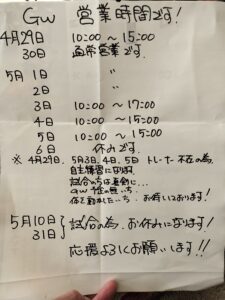 GW 営業時間です!
4月29日 10:00 ~ 15:00
30日 通常営業です。
5月 1日 〃
2日 〃
3日 10:00 ~ 17:00
4日 10:00 ~ 15:00
5日 10:00 ~ 15:00
6日 休みです。
※ 4月29日、5月3日、4日、5日 トレーナー不在の為、
自主練習になります。
試合のちは直前に...
GW 予定の無い方、
体を動かしたい方、お待ちしております!
5月10日
31日 } 試合の為、お休みになります!
応援よろしくお願いします!!